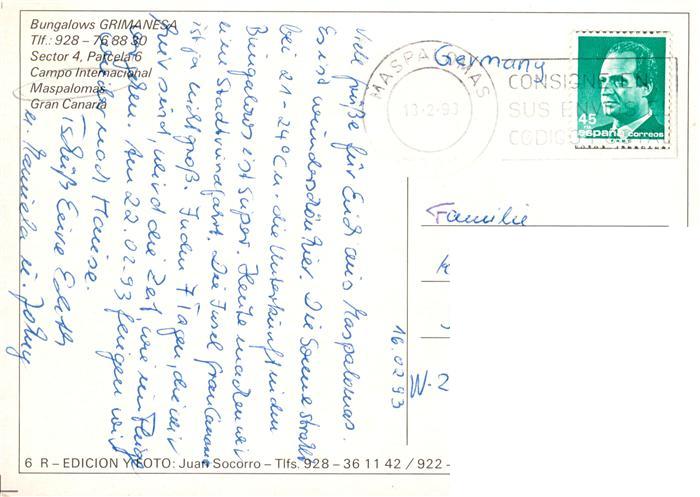 Bungalows GRIMANESA
Tlf.: 928 - 76 88 30
Sector 4, Parcela 6
Campo Internacional
Maspalomas
Gran Canaria
Germany
MASPALOMAS
13-2-93
CONSIGNE EN
SUS ENV
CODIGO
45
españa correos
Familie
W-2
16.02.93
Viele Grüße für Euch aus Maspalomas.
Es ist wunderschön hier. Die Sonne strahlt
bei 21-24°C u. die Unterkunft in den
Bungalows ist super. Heute machen wir
eine Stadtrundfahrt. Die Insel Gran Canaria
ist ja nicht groß. In den 7 Tagen, die wir
hier sind, wird die Zeit wie im Fluge
vergehen. Am 22.02.93 fliegen wir
wieder nach Hause.
Tschüß Eure Edith
u. Daniela u. Johny
6 R - EDICION Y FOTO: Juan Socorro - Tlfs. 928 - 36 11 42 / 922 -